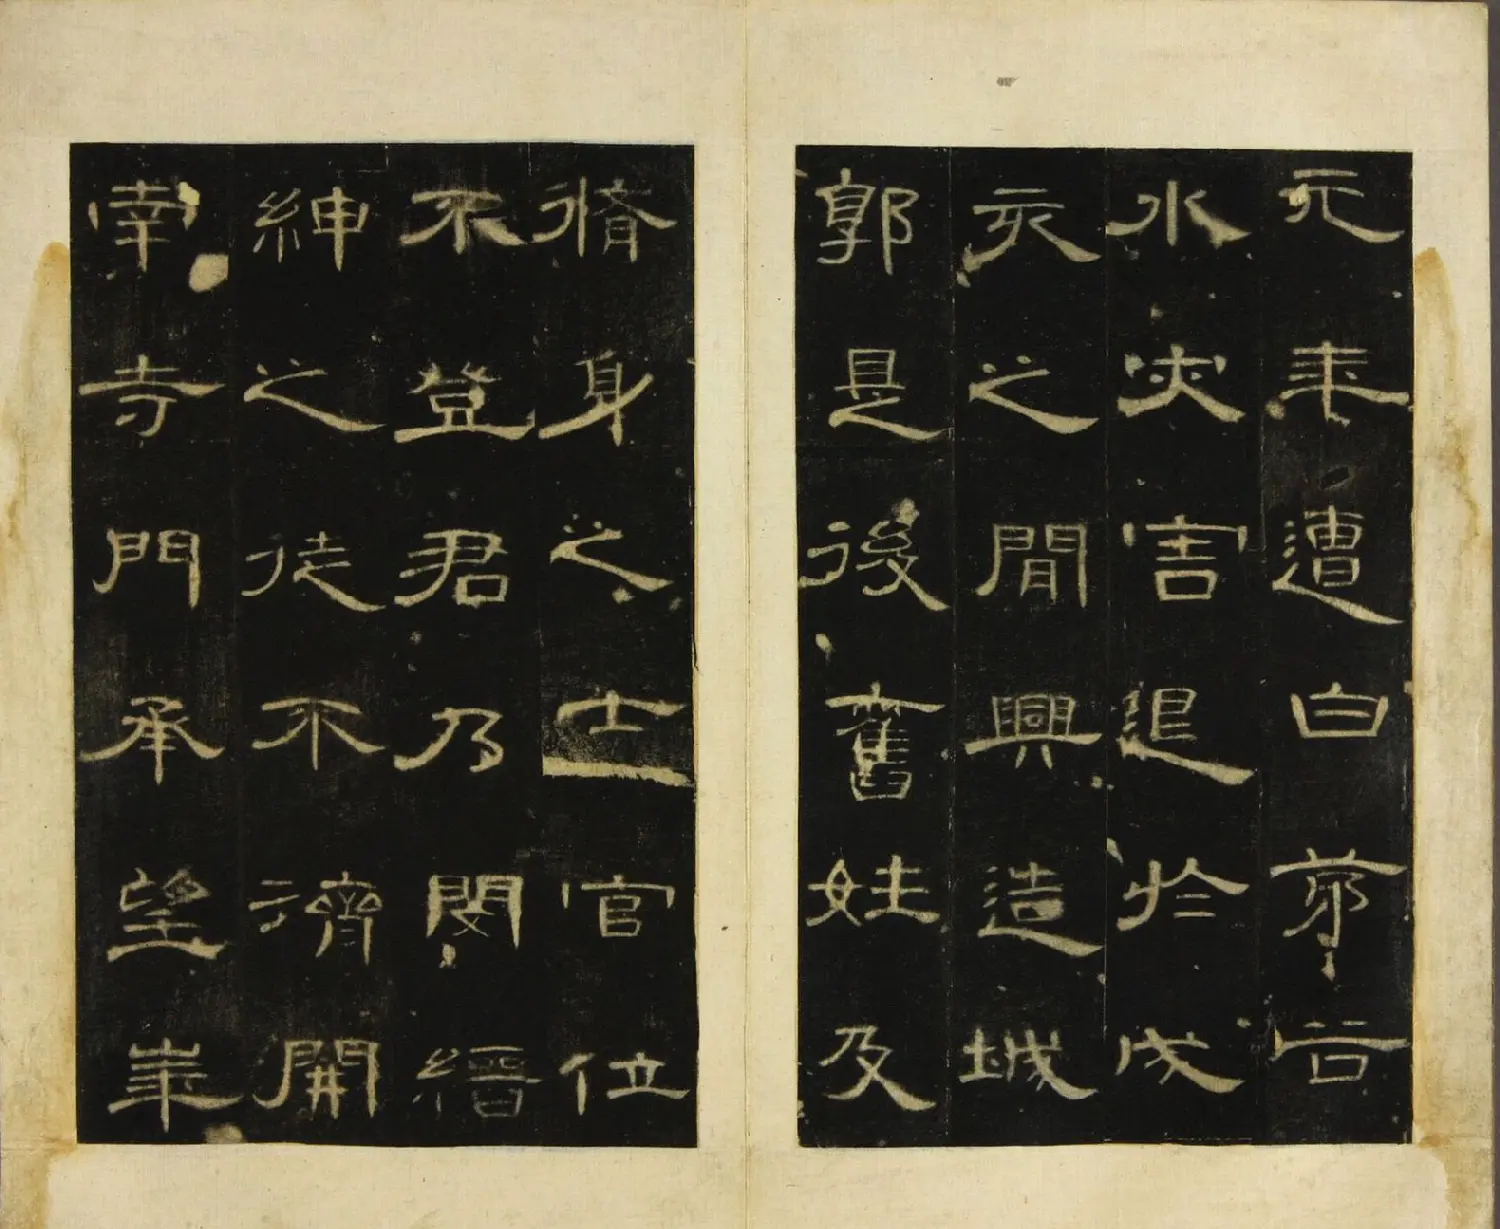 元来遭白茅谷
水灾害退於戌
亥之間興造城
郭是後舊姓及
脩身之士官位
不登君乃閔縉
紳之徒不濟開
南寺門承望華